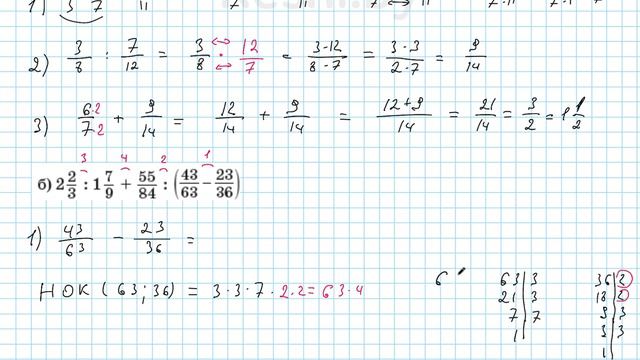 2) 3/8 : 7/12 = 3/8 · 12/7 = 3·12/8·7 = 3·3/2·7 = 9/14
3) 6·2/7·2 + 9/14 = 12/14 + 9/14 = 12+9/14 = 21/14 = 3/2 = 1 1/2
3 4 2 1
б) 2 2/3 : 1 7/9 + 55/84 : (43/63 − 23/36)
1) 43/63 − 23/36 =
НОК (63; 36) = 3·3·7·2·2 = 63·4
6
63 | 3 36 | 2
21 | 3 18 | 2
7 | 7 9 | 3
1 | 3 | 3
1